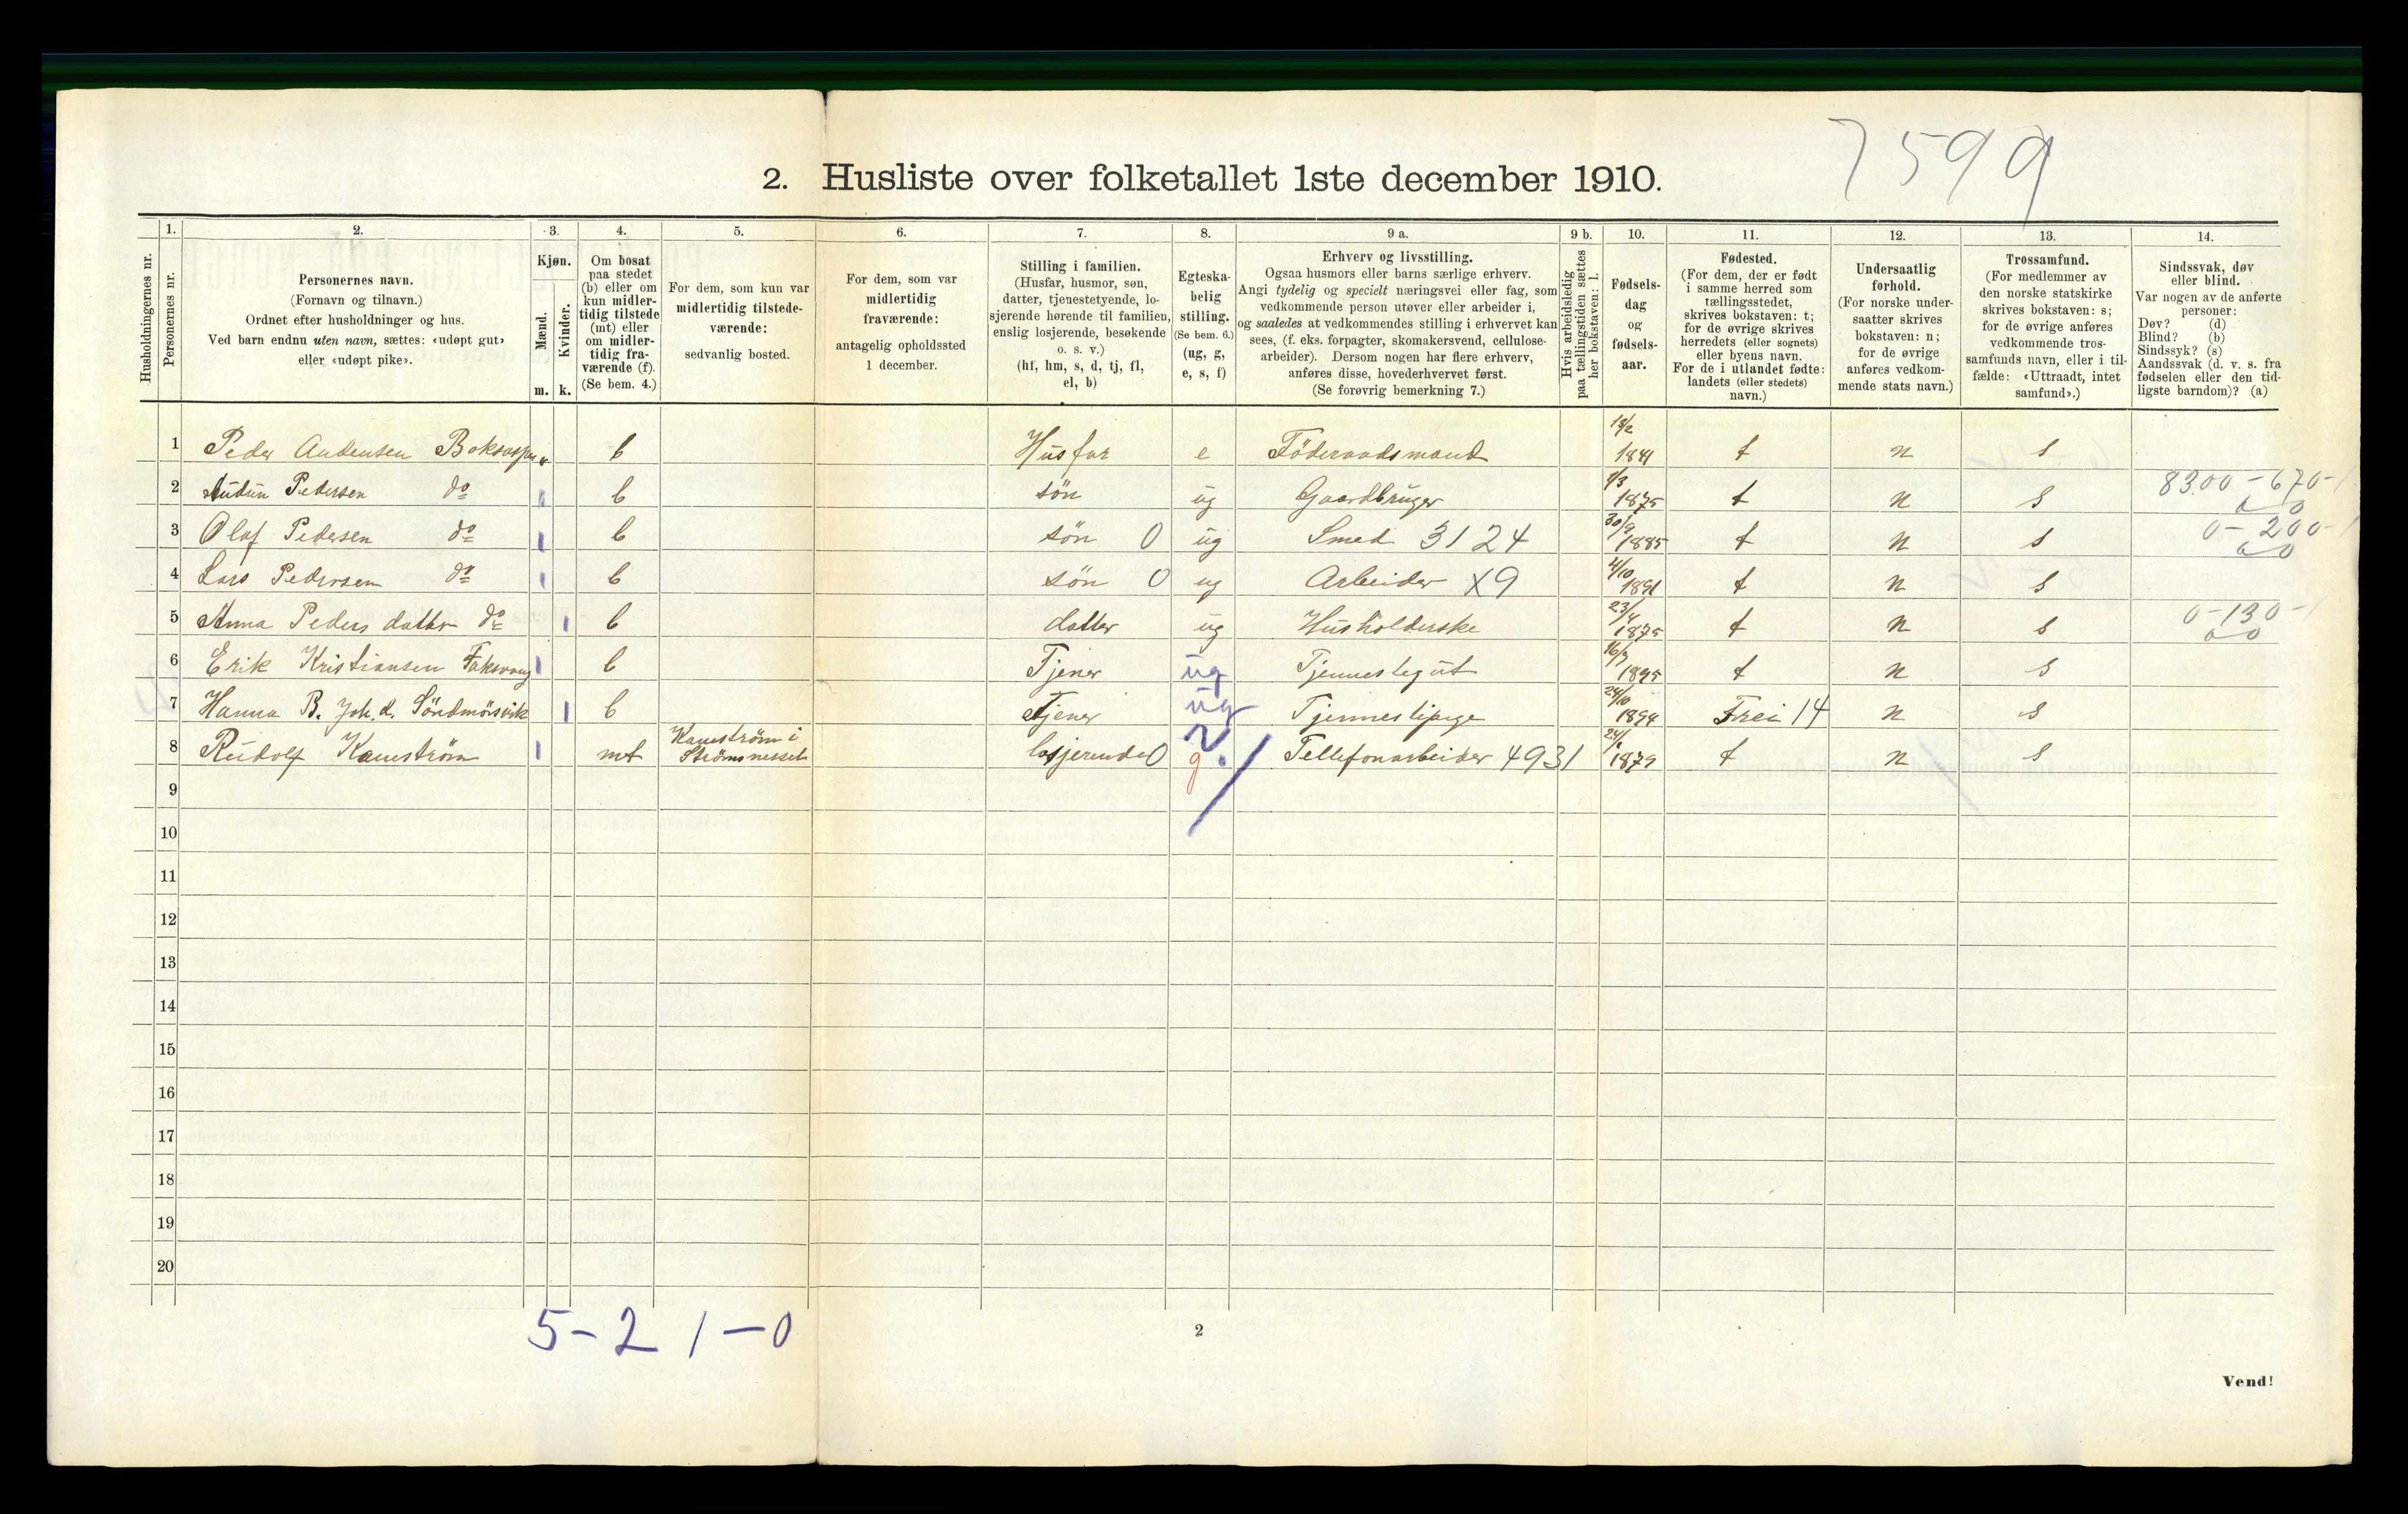 7599
2. Husliste over folketallet 1ste december 1910.
Husholdningernes nr.
1.
Personernes nr.
2.
Personernes navn.
(Fornavn og tilnavn.)
Ordnet efter husholdninger og hus.
Ved barn endnu uten navn, sættes: «udøpt gut»
eller «udøpt pike».
3.
Kjøn.
Mænd.
m.
Kvinder.
k.
4.
Om bosat
paa stedet
(b) eller om
kun midler-
tidig tilstede
(mt) eller
om midler-
tidig fra-
værende (f).
(Se bem. 4.)
5.
For dem, som kun var
midlertidig tilstede-
værende:
sedvanlig bosted.
6.
For dem, som var
midlertidig
fraværende:
antagelig opholdssted
1 december.
7.
Stilling i familien.
(Husfar, husmor, søn,
datter, tjenestetyende, lo-
sjerende hørende til familien,
enslig losjerende, besøkende
o. s. v.)
(hf, hm, s, d, tj, fl,
el, b)
8.
Egteska-
belig
stilling.
(Se bem. 6.)
(ug, g,
e, s, f)
9 a.
Erhverv og livsstilling.
Ogsaa husmors eller barns særlige erhverv.
Angi tydelig og specielt næringsvei eller fag, som
vedkommende person utøver eller arbeider i,
og saaledes at vedkommendes stilling i erhvervet kan
sees, (f. eks. forpagter, skomakersvend, cellulose-
arbeider). Dersom nogen har flere erhverv,
anføres disse, hovederhvervet først.
(Se forøvrig bemerkning 7.)
9 b.
Hvis arbeidsledig
paa tællingstiden sættes
her bokstaven: l.
10.
Fødsels-
dag
og
fødsels-
aar.
11.
Fødested.
(For dem, der er født
i samme herred som
tællingsstedet,
skrives bokstaven: t;
for de øvrige skrives
herredets (eller sognets)
eller byens navn.
For de i utlandet fødte:
landets (eller stedets)
navn.)
12.
Undersaatlig
forhold.
(For norske under-
saatter skrives
bokstaven: n;
for de øvrige
anføres vedkom-
mende stats navn.)
13.
Trossamfund.
(For medlemmer av
den norske statskirke
skrives bokstaven: s;
for de øvrige anføres
vedkommende tros-
samfunds navn, eller i til-
fælde: «Uttraadt, intet
samfund».)
14.
Sindssvak, døv
eller blind.
Var nogen av de anførte
personer:
Døv? (d)
Blind? (b)
Sindssyk? (s)
Aandssvak (d. v. s. fra
fødselen eller den tid-
ligste barndom)? (a)
1 Peder Audensen b Husfar e Föderaadsmand 1841 t n s
2 Audun Pedersen do b sön ug Gaardbruger 1/3 1875 t n s 8300-670-
3 Olaf Pedersen do b sön 0 ug Smed 3124 30/9 1885 t n s 0-200-
4 Lars Pedersen do b sön 0 ug Arbeider X9 4/10 1891 t n s
5 Anna Peders datter do b datter ug Husholderske 23/4 1875 t n s 0-130-
6 Erik Kristiansen b Tjener ug Tjennestegut 16/7 1895 t n s
7 Hanna B. Joh.d. Söndmörsvik b Tjener ug 24/10 1894 Frei 14 n s
8 Rudolf Kaneström mt Kaneström i
Strömsnesset losjerende 0 g Tellefonarbeider 4931 1879 t n s
9
10
11
12
13
14
15
16
17
18
19
20
5-2 1-0
2
Vend!